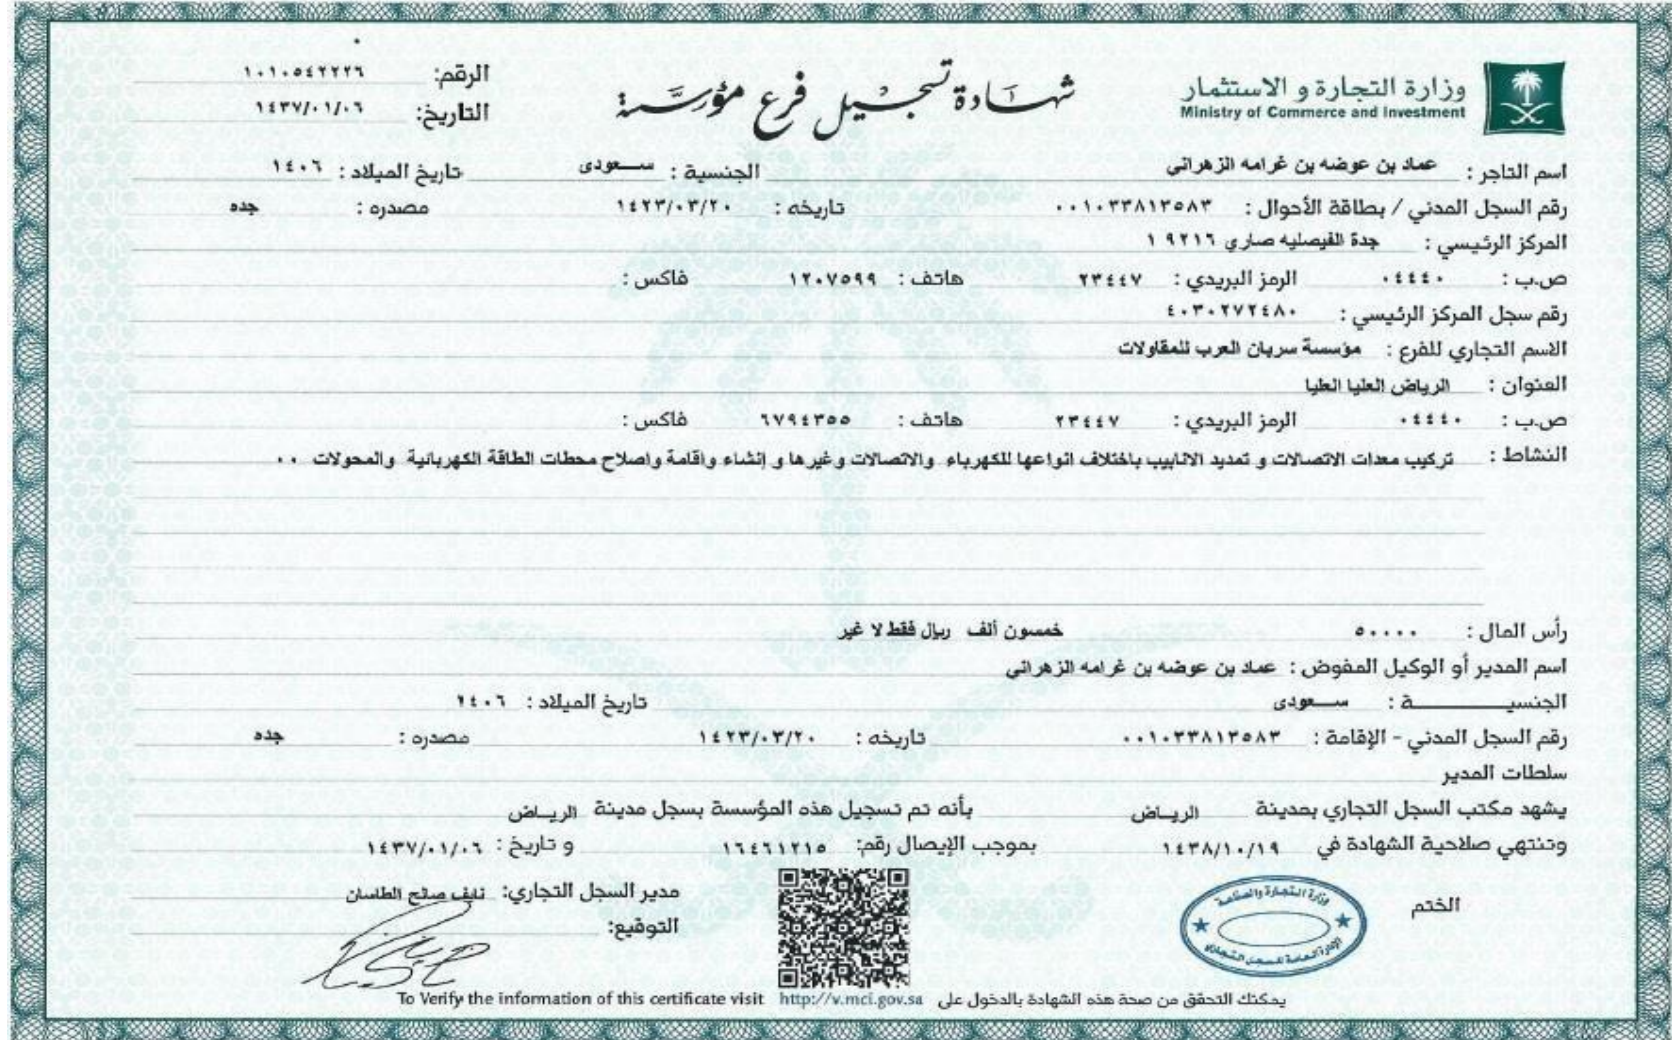 وزارة التجارة و الاستثمار
Ministry of Commerce and Investment
شهادة تسجيل فرع مؤسسة
الرقم: ١٠١٠٥٤٢٢٢٦
التاريخ: ١٤٣٧/٠١/٠٦
اسم التاجر : عماد بن عوضه بن غرامه الزهرانى الجنسية : سعودى تاريخ الميلاد : ١٤٠٦
رقم السجل المدني / بطاقة الأحوال : ٠٠١٠٣٣٨١٣٥٨٣ تاريخه : ١٤٢٣/٠٣/٢٠ مصدره : جده
المركز الرئيسي : جدة الفيصليه صاري ٩٢١٦ ١
ص.ب : ٠٤٤٤٠ الرمز البريدي : ٢٣٤٤٧ هاتف : ١٢٠٧٥٩٩ فاكس :
رقم سجل المركز الرئيسي : ٤٠٣٠٢٧٢٤٨٠
الاسم التجاري للفرع : مؤسسة سريان العرب للمقاولات
العنوان : الرياض العليا العليا
ص.ب : ٠٤٤٤٠ الرمز البريدي : ٢٣٤٤٧ هاتف : ٦٧٩٤٣٥٥ فاكس :
النشاط : تركيب معدات الاتصالات و تمديد الانابيب باختلاف انواعها للكهرباء والاتصالات وغيرها و إنشاء واقامة واصلاح محطات الطاقة الكهربائية والمحولات ٠٠
رأس المال : ٥٠٠٠٠ خمسون ألف ريال فقط لا غير
اسم المدير أو الوكيل المفوض : عماد بن عوضه بن غرامه الزهرانى
الجنسيــــــة : سعودى تاريخ الميلاد : ١٤٠٦
رقم السجل المدني - الإقامة : ٠٠١٠٣٣٨١٣٥٨٣ تاريخه : ١٤٢٣/٠٣/٢٠ مصدره : جده
سلطات المدير
يشهد مكتب السجل التجاري بمدينة الريـاض بأنه تم تسجيل هذه المؤسسة بسجل مدينة الريـاض
وتنتهي صلاحية الشهادة في ١٤٣٨/١٠/١٩ بموجب الإيصال رقم: ١٦٤٦١٢١٥ و تاريخ : ١٤٣٧/٠١/٠٦
الختم
وزارة التجارة والصناعة
الإدارة العامة للسجل التجاري
مدير السجل التجاري: نايف صالح الطاسان
التوقيع:
يمكنك التحقق من صحة هذه الشهادة بالدخول على http://v.mci.gov.sa To Verify the information of this certificate visit